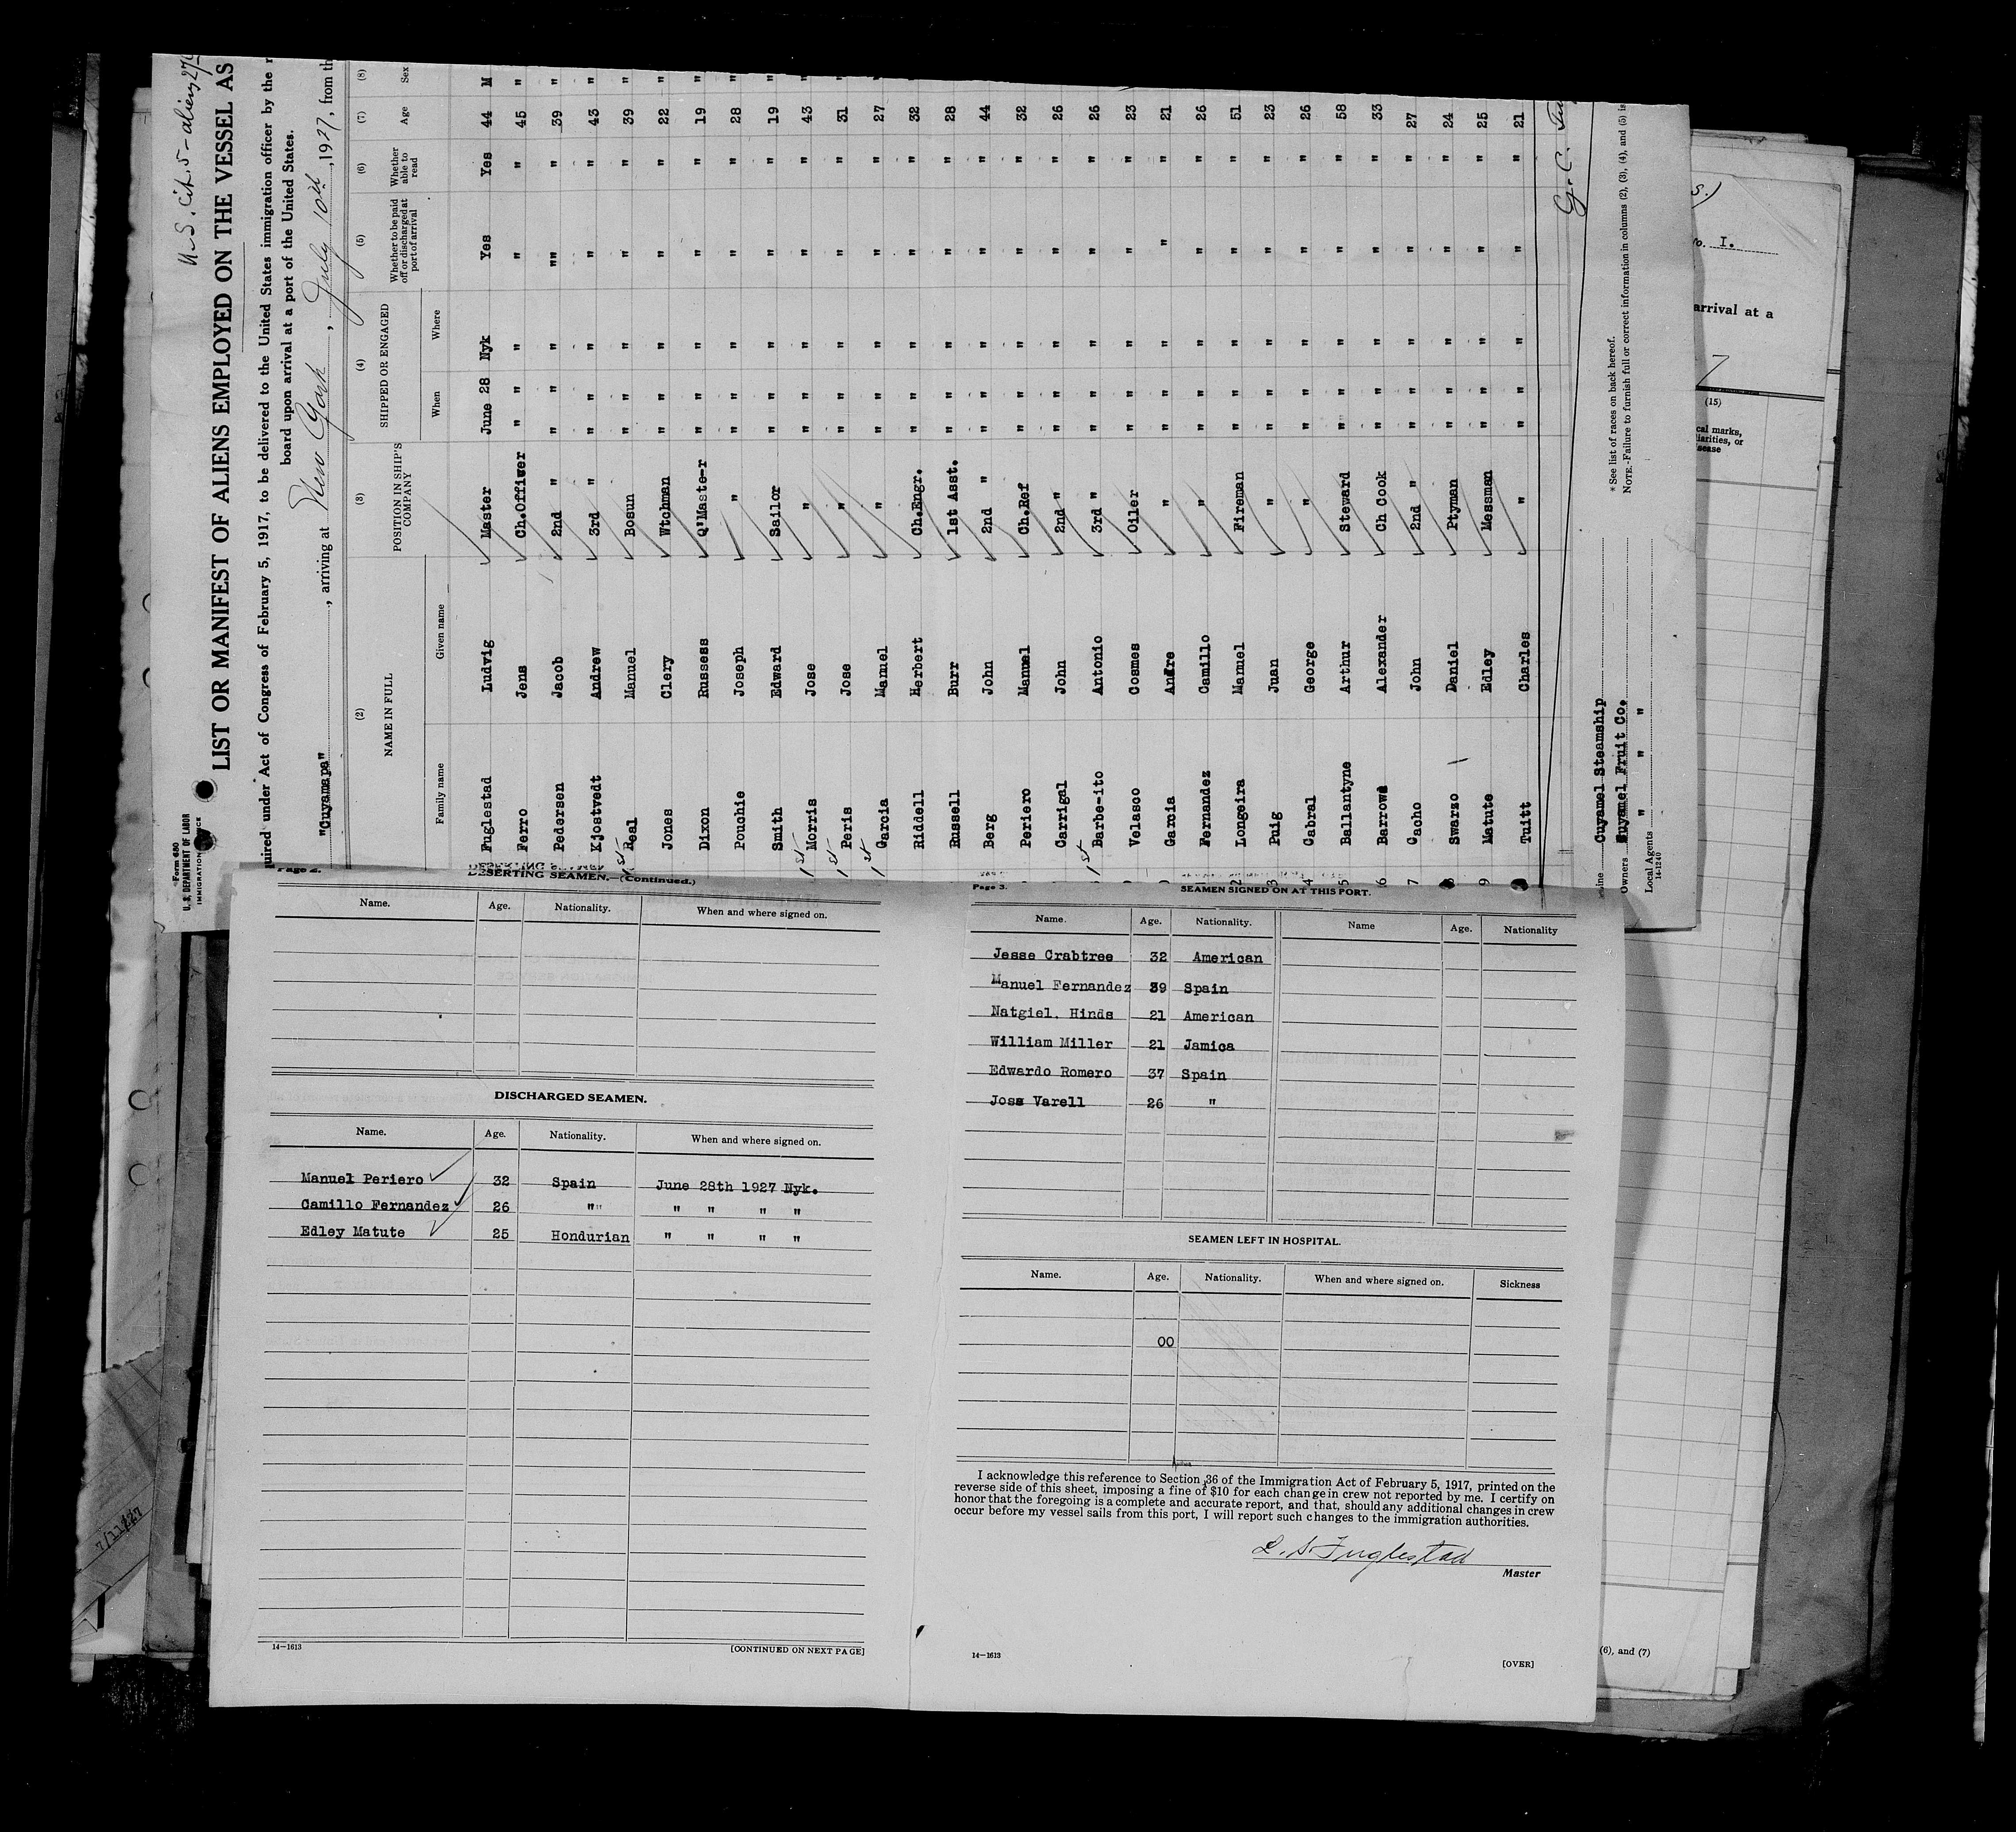 U.S. Cit. 5 - aliens 27
Form 680
U. S. DEPARTMENT OF LABOR
IMMIGRATION
LIST OR MANIFEST OF ALIENS EMPLOYED ON THE VESSEL AS
quired under Act of Congress of February 5, 1917, to be delivered to the United States immigration officer by the r
board upon arrival at a port of the United States.
"Cuyamapa" , arriving at New York , July 10th , 1927, from th
(2) (3) (4) (5) (6) (7) (8)
NAME IN FULL POSITION IN SHIP'S COMPANY SHIPPED OR ENGAGED Whether to be paid off or discharged at port of arrival Whether able to read Age Sex
Family name Given name When Where
Fuglestad Ludvig Master June 28 Nyk Yes Yes 44 M
Ferro Jens Ch.Officer " " " " " 45 "
Pedersen Jacob 2nd " " " " "" " 39 "
Kjostvedt Andrew 3rd " " " " " " 43 "
1st Real Manuel Bosun " " " " " 39 "
Jones Clery Wtchman " " " " " 22 "
Dixon Russess Q'Maste-r " " " " " 19 "
Pouchie Joseph " " " " " " 28 "
Smith Edward Sailor " " " " " 19 "
1st Morris Jose " " " " " " 43 "
1st Peris Jose " " " " " " 31 "
1st Garcia Manuel " " " " " " 27
Riddell Herbert Ch.Engr. " " " " " 32
Russell Burr 1st Asst. " " " " " 28
Berg John 2nd " " " " " " 44
Periero Manuel Ch.Ref " " " " " 32
Carrigal John 2nd " " " " " " 26
1st Barbe-ito Antonio 3rd " " " " " " 26
Velasco Cosmes Oiler " " " " " 23
Garcia Andre " " " " " " 21
Fernandez Camillo " " " " " " 26
Longeira Manuel Fireman " " " " " 51
Puig Juan " " " " " " 23
Cabral George " " " " " " 26
Ballantyne Arthur Steward " " " " " 58
Barrowd Alexander Ch Cook " " " " " 33
Cacho John 2nd " " " " " " 27
Swarzo Daniel Ptyman " " " " " 24
Matute Edley Messman " " " " " 25
Tuitt Charles " " " " " " 21
G. C.
Line Cuyamel Steamship
Owners Cuyamel Fruit Co.
Local Agents " " "
14-1240
* See list of races on back hereof.
NOTE.-Failure to furnish full or correct information in columns (2), (3), (4), and (5) is
s.)
o. 1.
arrival at a
7
(15)
cal marks,
liarities, or
sease
(6), and (7)
Page 2.
DESERTING SEAMEN.—(Continued.)
Name. Age. Nationality. When and where signed on.
DISCHARGED SEAMEN.
Name. Age. Nationality. When and where signed on.
Manuel Periero 32 Spain June 28th 1927 Nyk.
Camillo Fernandez 26 "" " " " "
Edley Matute 25 Hondurian " " " "
14—1613
[CONTINUED ON NEXT PAGE]
Page 3.
SEAMEN SIGNED ON AT THIS PORT.
Name. Age. Nationality. Name Age. Nationality
Jesse Crabtree 32 American
Manuel Fernandez 39 Spain
Natgiel. Hinds 21 American
William Miller 21 Jamica
Edwardo Romero 37 Spain
Jose Varell 26 "
SEAMEN LEFT IN HOSPITAL.
Name. Age. Nationality. When and where signed on. Sickness
00
I acknowledge this reference to Section 36 of the Immigration Act of February 5, 1917, printed on the
reverse side of this sheet, imposing a fine of $10 for each change in crew not reported by me. I certify on
honor that the foregoing is a complete and accurate report, and that, should any additional changes in crew
occur before my vessel sails from this port, I will report such changes to the immigration authorities.
L. S. Fuglestad
Master
14—1613
[OVER]
7/11/27